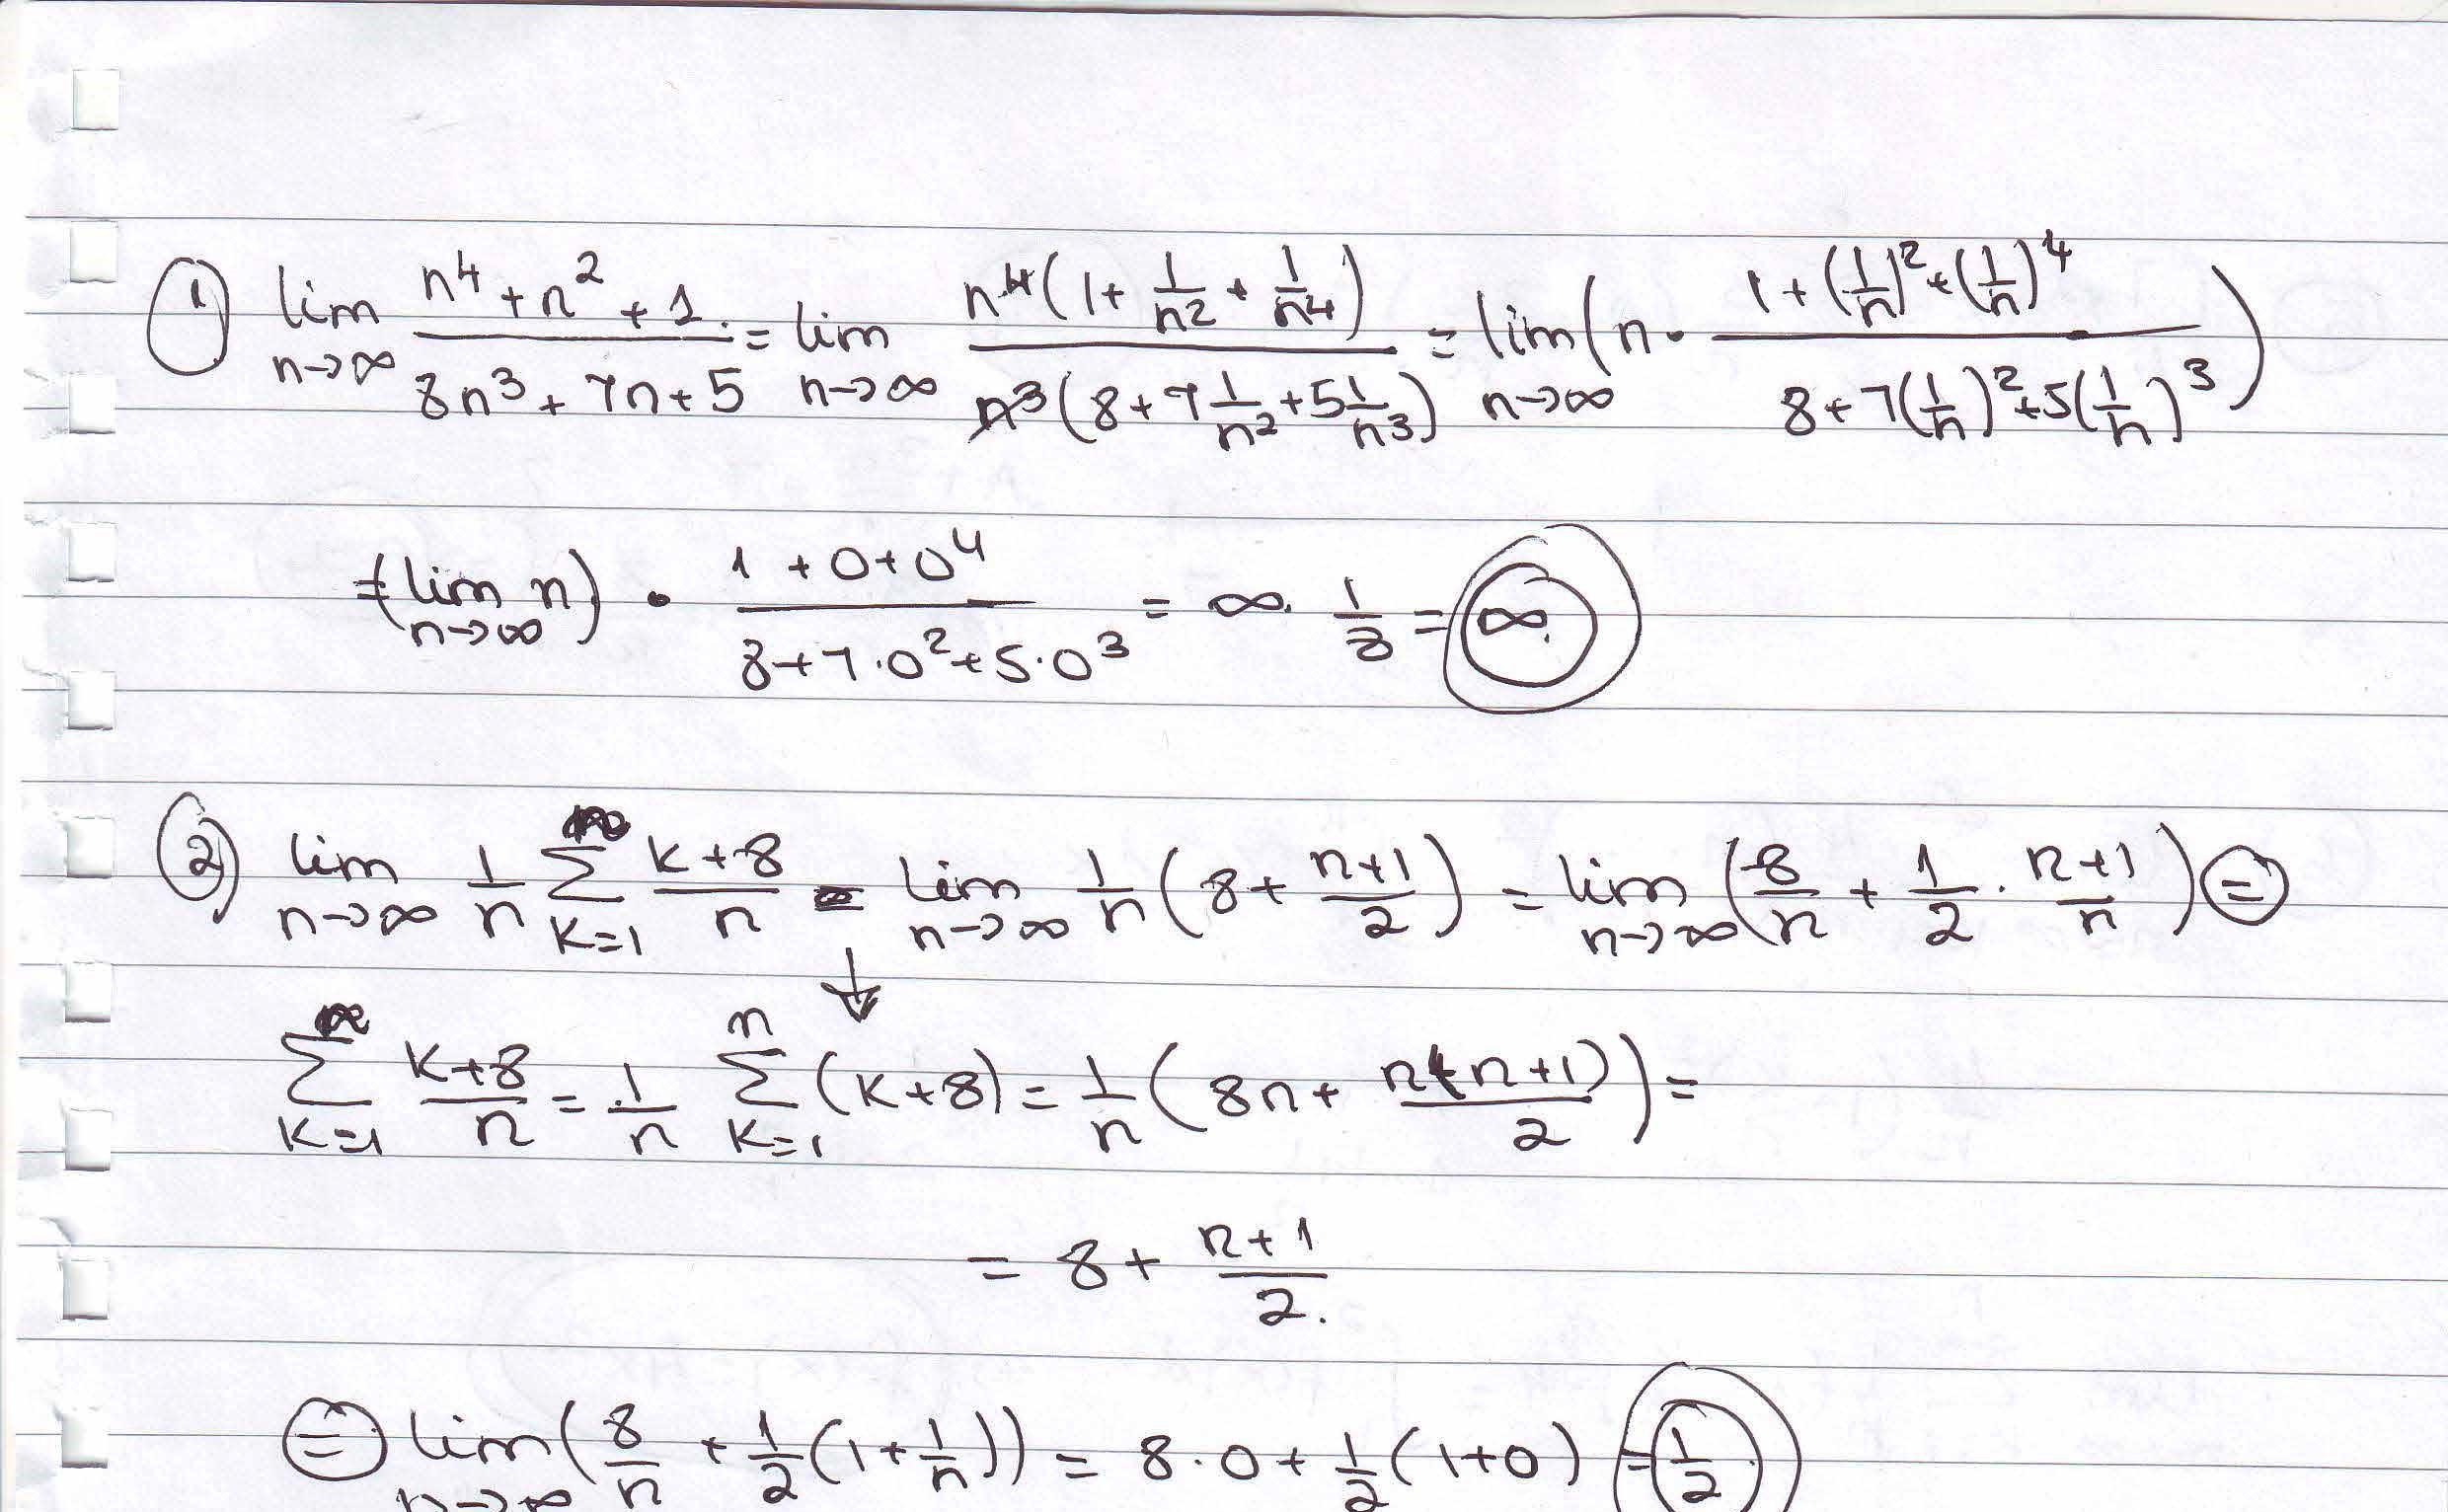 ① lim n→∞ (n⁴+n²+1)/(8n³+7n+5) = lim n→∞ n⁴(1+1/n²+1/n⁴)/n³(8+7 1/n²+5 1/n³) = lim n→∞ (n · (1+(1/n)²+(1/n)⁴)/(8+7(1/n)²+5(1/n)³))
=(lim n→∞ n) · (1+0+0⁴)/(8+7·0²+5·0³) = ∞ · 1/8 = ∞.
② lim n→∞ 1/n Σ k=1 (k+8)/n = lim n→∞ 1/n (8+(n+1)/2) = lim n→∞ (8/n + 1/2 · (n+1)/n) ⊜
↓
Σ k=1 (k+8)/n = 1/n Σ k=1 n (k+8) = 1/n (8n + n(n+1)/2) =
= 8 + (n+1)/2.
⊜ lim n→∞ (8/n + 1/2(1+1/n)) = 8·0 + 1/2(1+0) = 1/2